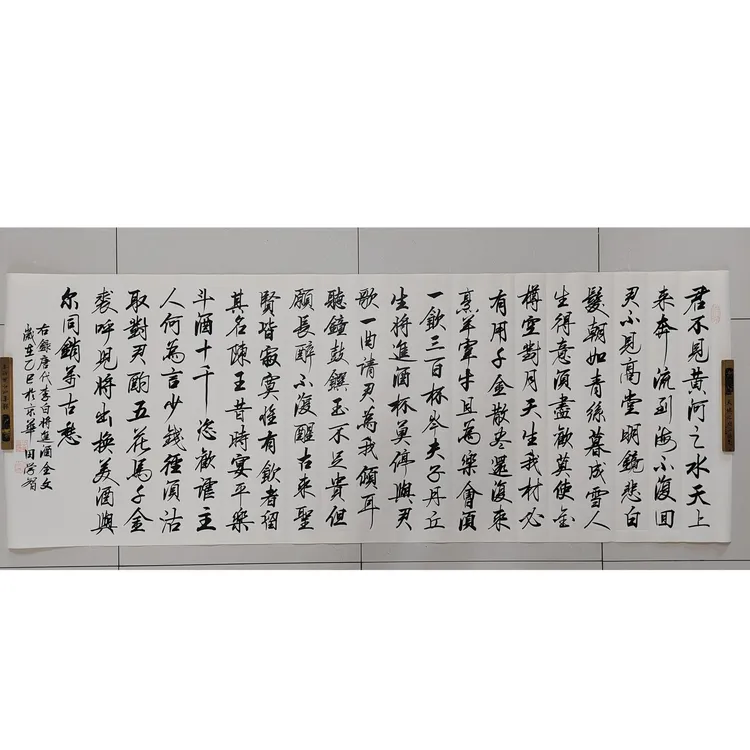 君不見黄河之水天上
来奔流到海不復回
君不見高堂明鏡悲白
髮朝如青絲暮成雪人
生得意須盡歡莫使金
樽空對月天生我材必
有用千金散盡還復來
烹羊宰牛且為樂會須
一飲三百杯岑夫子丹丘
生將進酒杯莫停與君
歌一曲請君為我傾耳
聽鐘鼓饌玉不足貴但
願長醉不復醒古來聖
賢皆寂寞惟有飲者留
其名陳王昔時宴平樂
斗酒十千恣歡謔主
人何為言少錢徑須沽
取對君酌五花馬千金
裘呼兒將出換美酒與
尔同銷萬古愁
右録唐代李白将進酒全文
歲在乙巳於京華